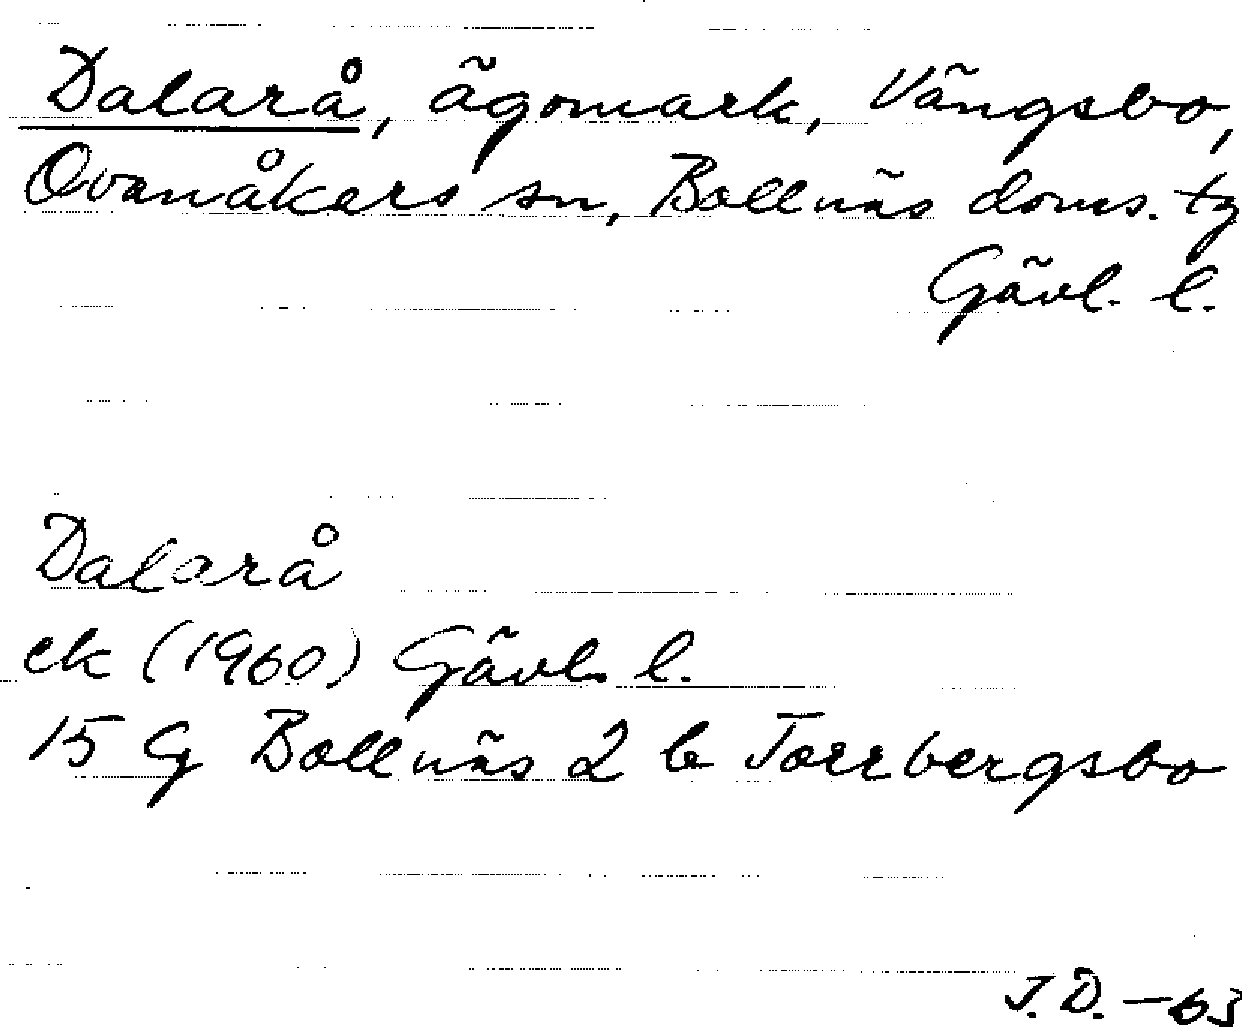 Dalarå, ägomark, Vängsbo,
Ovanåkers sn, Bollnäs doms. tg
Gävl. l.
Dalarå
ek (1960) Gävl. l.
15 G Bollnäs 2 b Torrbergsbo
J.D. -63